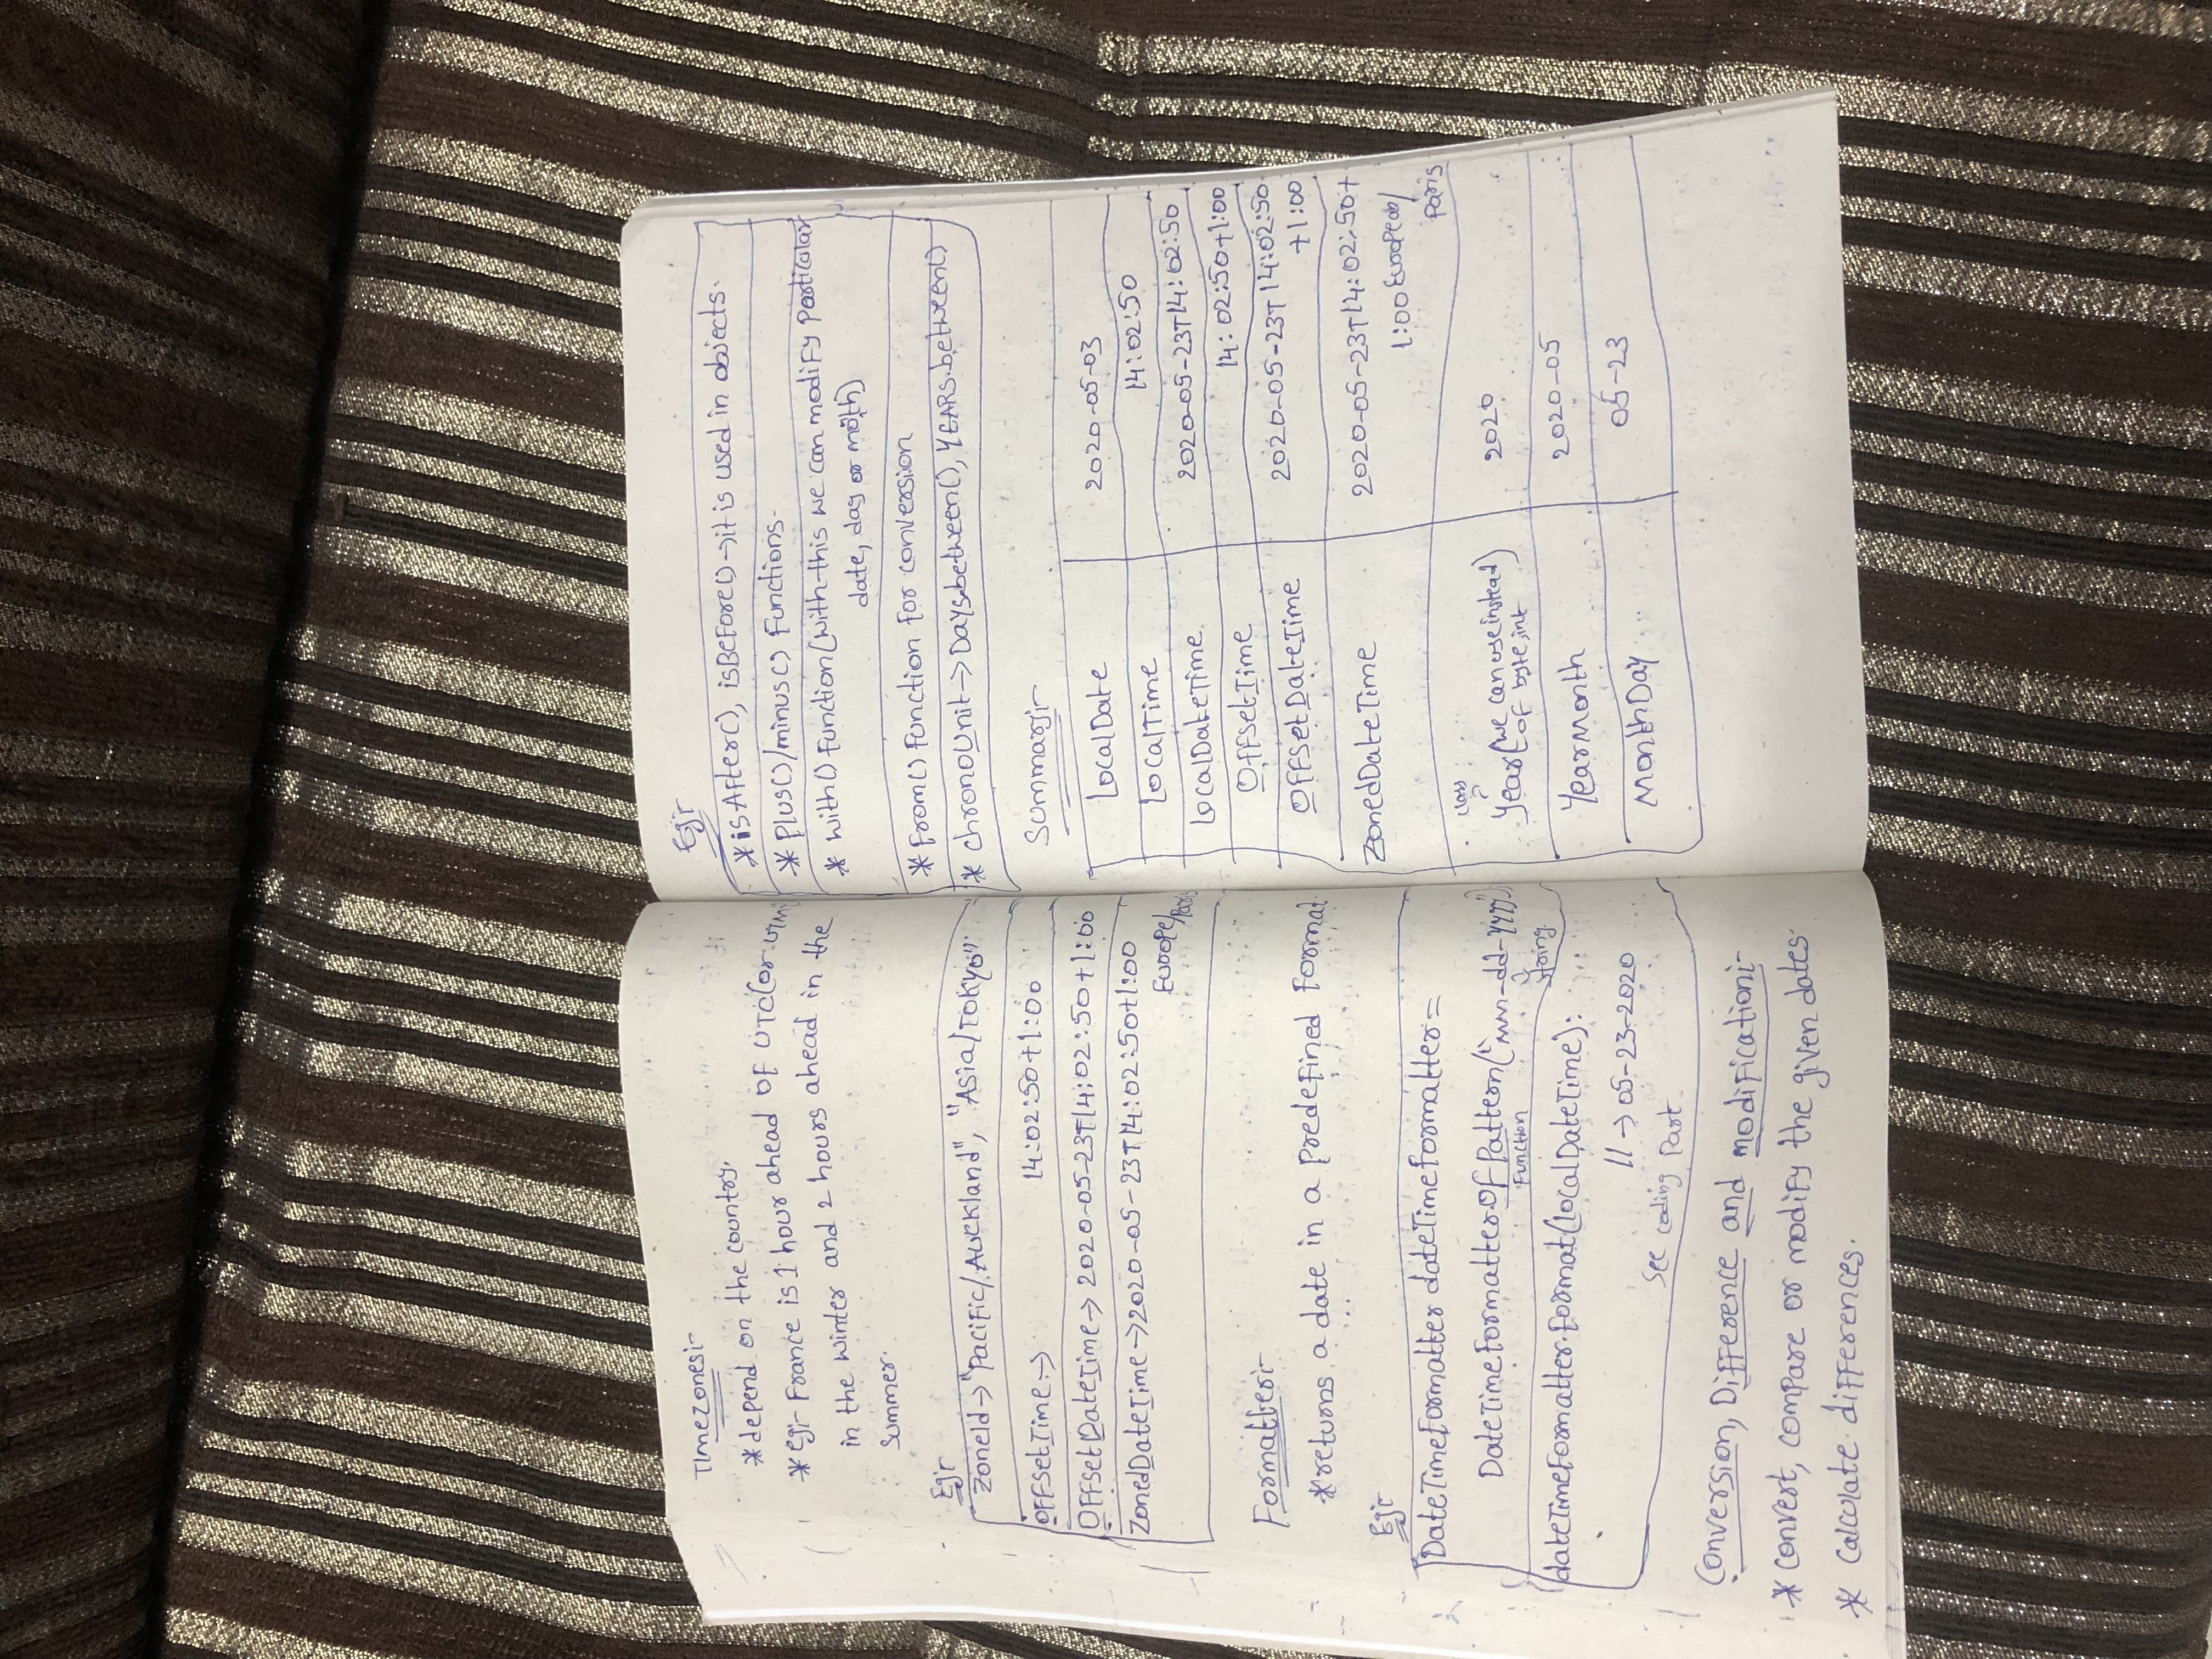 Timezones:-
* depend on the country.
* eg:- France is 1 hour ahead of UTC (or
in the winter and 2 hours ahead in the
summer.
Eg:-
ZoneId -> "Pacific/Auckland", "Asia/Tokyo"
OffsetTime -> 14:02:50+1:00
OffsetDateTime -> 2020-05-23T14:02:50+1:00
ZonedDateTime -> 2020-05-23T14:02:50+1:00
Europe/Paris
Formatter:-
* returns a date in a predefined format
Eg:-
DateTimeFormatter dateTimeFormatter =
DateTimeFormatter.ofPattern("MM-dd-yyyy")
function
string
dateTimeFormatter.format(localDateTime):
// -> 05-23-2020
See coding Part
Conversion, Difference and modification:-
* convert, compare or modify the given dates
* Calculate differences.
Eg:-
* isAfter(), isBefore() -> it is used in objects.
* plus()/minus() Functions.
* with() function (with this we can modify particular
date, day or month)
* from() function for conversion
* chronoUnit -> Days.between(), YEARS.between()
Summary:-
LocalDate 2020-05-03
LocalTime 14:02:50
LocalDateTime 2020-05-23T14:02:50
OffsetTime 14:02:50+1:00
OffsetDateTime 2020-05-23T14:02:50
+1:00
ZonedDateTime 2020-05-23T14:02:50+
1:00 European/
Paris
class
Year (we can use instead 2020
of byte, int)
YearMonth 2020-05
MonthDay 05-23